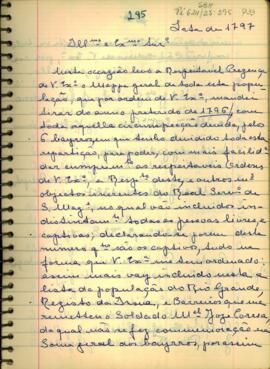 295
Data de 1797
Illmo. e Exmo. Snr.
Nesta occazião levo a Respeitavel Prezença
de V. Exa. o Mappa geral de toda esta popu-
lação, que por ordem de V. Exa. mandei
tirar do anno preterido de 1796, com
toda aquella circumspecção devida, pelos
6 bayrros em que tenho dividido toda esta
repartição, para poder com mais facilida-
de cumprir as respeitaveis Ordens
de V. Exa. a Respto. deste, e outros mil
objectos inherentes do Real Serviço de
S. Magde., no qual vão incluidos in-
distintamte. todas as pessoas livres, e
captivas, declarando-se porem deste
numero qtos. são os captivos, tudo na
forma que V. Exa. me tem ordenado;
assim mais vay incluido nesta a
lista da população do Rio Grande,
Registo da Irova, e Barreiros que me
remetteo o Soldado Mel. Joze Correa,
da qual não se fez commemoração no
Semo geral dos bayrros, por assim